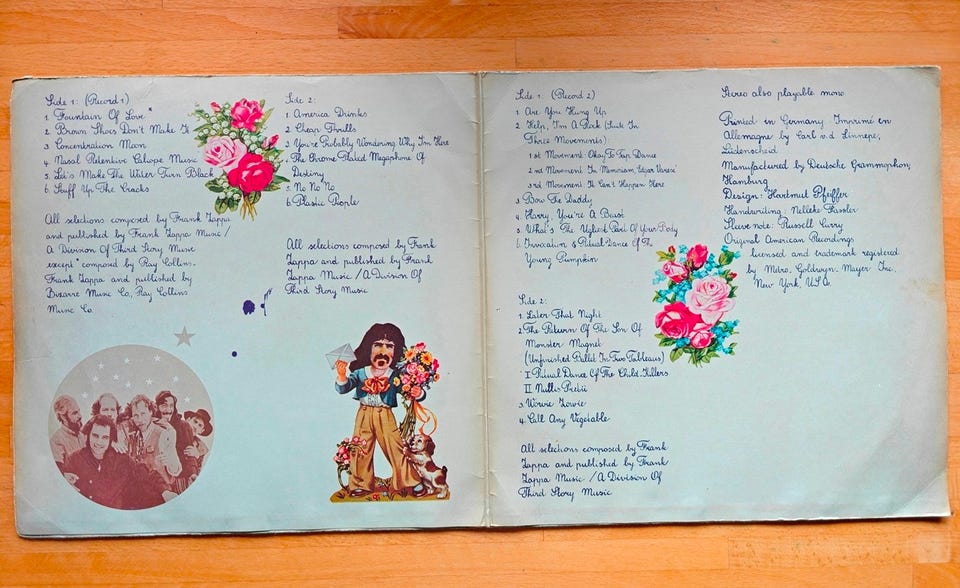 Side 1: (Record 1)
1. Fountain Of Love *
2. Brown Shoes Don't Make It
3. Concentration Moon
4. Nasal Retentive Caliope Music
5. Let's Make The Water Turn Black
6. Stuff Up The Cracks
All selections composed by Frank Zappa
and published by Frank Zappa Music /
A Division Of Third Story Music
except * composed by Ray Collins.
Frank Zappa and published by
Bizarre Music Co, Ray Collins
Music Co.
Side 2:
1. America Drinks
2. Cheap Thrills
3. You're Probably Wondering Why I'm Here
4. The Chrome Plated Megaphone Of
Destiny
5. No No No
6. Plastic People
All selections composed by Frank
Zappa and published by Frank
Zappa Music / A Division Of
Third Story Music
Side 1: (Record 2)
1. Are You Hung Up
2. Help, I'm A Rock (Suite In
Three Movements)
1st Movement: Okay To Tap Dance
2nd Movement: In Memoriam, Edgar Varesi
3rd Movement: It Can't Happen Here
3. Bow Tie Daddy
4. Harry, You're A Beast
5. What's The Ugliest Part Of Your Body
6. Invocation & Ritual Dance Of The
Young Pumpkin
Side 2:
1. Later That Night
2. The Return Of The Son Of
Monster Magnet
(Unfinished Ballet In Two Tableaus)
I Ritual Dance Of The Child-Killers
II. Nullis Pretii
3. Wowie Zowie
4. Call Any Vegetable
All selections composed by Frank
Zappa and published by Frank
Zappa Music / A Division Of
Third Story Music
Stereo also playable mono
Printed in Germany. Imprimé en
Allemagne by Carl v.d. Linnepe,
Lüdenscheid
Manufactured by Deutsche Grammophon,
Hamburg
Design: Hartmut Pfeiffer
Handwriting: Nelleke Fassler
Sleeve note: Russell Curry
Original American Recordings
licensed and trademark registered
by Metro. Goldwyn. Mayer Inc.,
New York, U.S.A.